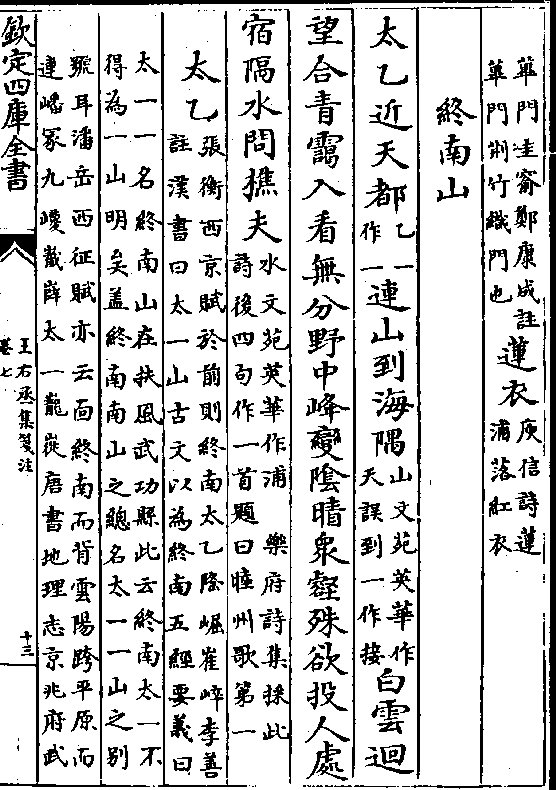 蓽門圭窬鄭康成註
蓽門荆竹織門也
蓮衣
庾信詩蓮
浦落紅衣
終南山
太乙近天都
乙一
作一
連山到海隅
山文苑英華作
天誤到一作接
白雲迴
望合青靄入看無分野中峰變陰晴衆壑殊欲投人處
宿隔水問樵夫
水文苑英華作浦 樂府詩集採此
詩後四句作一首題曰睦州歌第一
太乙
張衡西京賦於前則終南太乙隆崛崔崒李善
註漢書曰太一山古文以為終南五經要義曰
太一一名終南山在扶風武功縣此云終南太一不
得為一山明矣盖終南南山之總名太一一山之别
號耳潘岳西征賦亦云面終南而背雲陽跨平原而
連嶓冢九嵕嶻嶭太一巃嵸唐書地理志京兆府武
欽定四庫全書
王右丞集箋注
卷七
十三